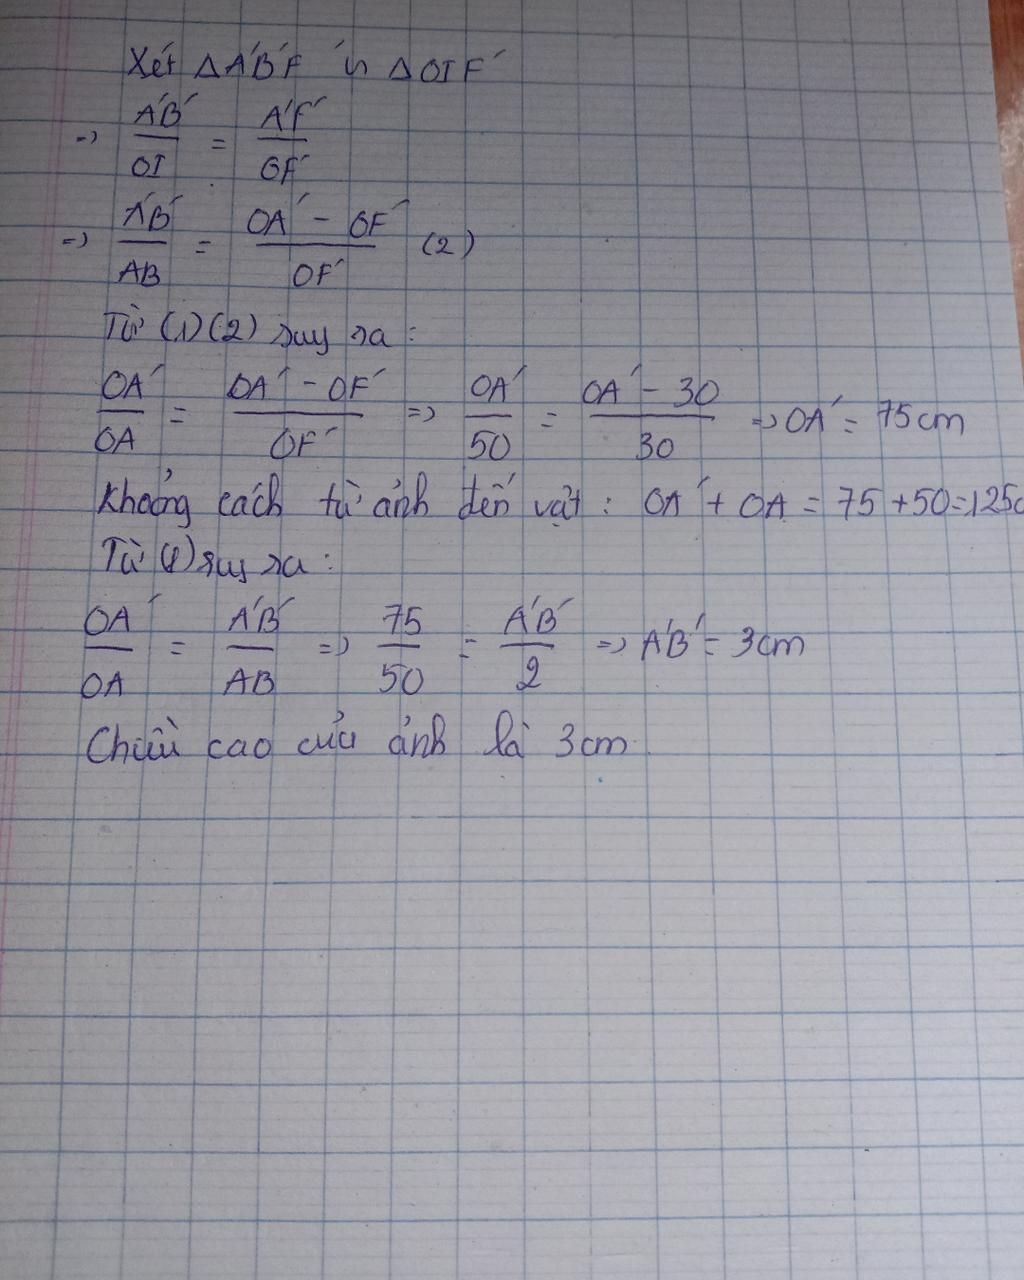 Xét ΔA'B'F' ∽ ΔOIF'
=> A'B'/OI = A'F'/OF'
=> A'B'/AB = (OA' - OF')/OF' (2)
Từ (1)(2) suy ra :
OA'/OA = (OA' - OF')/OF' => OA'/50 = (OA' - 30)/30 => OA' = 75cm
Khoảng cách từ ảnh đến vật : OA' + OA = 75 + 50 = 125c
Từ (1) suy ra :
OA'/OA = A'B'/AB => 75/50 = A'B'/2 => A'B' = 3cm
Chiều cao của ảnh là 3cm